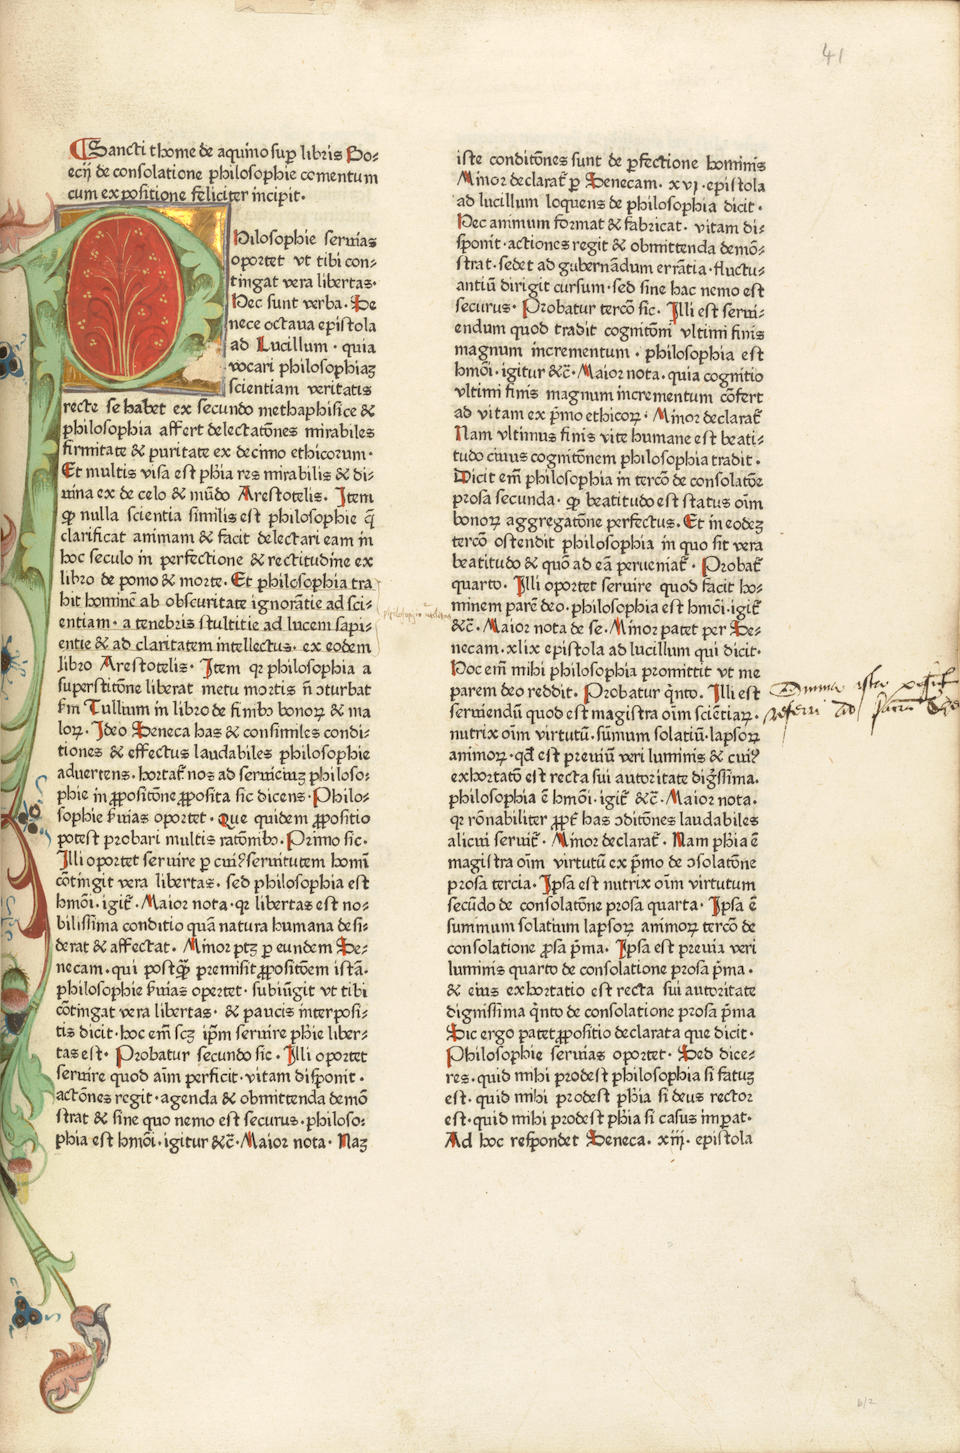 41
Sancti thome de aquino suꝑ libris Bo⸗
ecij de consolatione philosophie cōmentum
cum expositione feliciter incipit.
Hilosophie seruias
oportet vt tibi con⸗
tingat vera libertas.
Hec sunt verba. Se
nece octaua epistola
ad Lucillum . quia
vocari philosophiaꝫ
scientiam veritatis
recte se habet ex secundo methaphisice &
philosophia affert delectatōnes mirabiles
firmitate & puritate ex decimo ethicorum.
Et multis visa est ph̄ia res mirabilis & di⸗
uina ex de celo & mūdo Arestotelis. Item
ꝙ nulla scientia similis est philosophie q̄
clarificat animam & facit delectari eam in
hoc seculo in perfectione & rectitudine ex
libro de pomo & morte. Et philosophia tra
hit hominē ab obscuritate ignorātie ad sci⸗
entiam. a tenebris stultitie ad lucem sapi⸗
entie & ad claritatem intellectus. ex eodem
libro Arestotelis. Item qꝛ philosophia a
superstitōne liberat metu mortis ñ ↄturbat
ẜm Tullium in libro de finibꝰ bonoꝝ & ma
loꝝ. Ideo Seneca has & consimiles condi⸗
tiones & effectus laudabiles philosophie
aduertens. hortat̃ nos ad seruiciuꝫ philoso⸗
phie in ꝓpositōne ꝓposita sic dicens. Philo⸗
sophie ẜuias oportet. Que quidem ꝓpositio
potest probari multis ratōnibꝰ. Primo sic.
Illi oportet seruire ꝑ cuiꝰ seruitutem homī
cōtingit vera libertas. sed philosophia est
hmōi. igit̃. Maior nota. qꝛ libertas est no⸗
bilissima conditio quā natura humana desi⸗
derat & affectat. Minor ptꝫ ꝑ eundem Se⸗
necam. qui postꝙ̄ premisit ꝓpositōem istā.
philosophie ẜuias oportet. subiūgit vt tibi
cōtingat vera libertas. & paucis interposi⸗
tis dicit. hoc em̄ scꝫ ip̄m seruire ph̄ie liber⸗
tas est. Probatur secundo sic. Illi oportet
seruire quod aīm perficit. vitam disponit .
actōnes regit. agenda & obmittenda demō
strat & sine quo nemo est securus. philoso⸗
phia est hmōi. igitur &c̄. Maior nota. Naꝫ
iste conditōnes sunt de ꝑfectione hominis
Minor declarat̃ ꝑ Senecam. xvj. epistola
ad lucillum loquens de philosophia dicit.
Hec animum format & fabricat. vitam di⸗
sponit. actiones regit & obmittenda demō⸗
strat. sedet ad gubernādum errātia. fluctu⸗
antiū dirigit cursum. sed sine hac nemo est
securus. Probatur tercō sic. Illi est serui⸗
endum quod tradit cognitōni vltimi finis
magnum incrementum . philosophia est
hmōi. igitur &c̄. Maior nota. quia cognitio
vltimi finis magnum incrementum cōfert
ad vitam ex p̄mo ethicoꝝ. Minor declarat̃
Nam vltimus finis vite humane est beati⸗
tudo cuius cognitōnem philosophia tradit.
Dicit em̄ philosophia in tercō de consolatōe
prosa secunda. ꝙ beatitudo est status oīm
bonoꝝ aggregatōne perfectus. Et in eodeꝫ
tercō ostendit philosophia in quo sit vera
beatitudo & quō ad eā perueniat̃. Probat̃
quarto. Illi oportet seruire quod facit ho⸗
minem parē deo. philosophia est hmōi. igit̃
&c̄. Maior nota de se. Minor patet per Se⸗
necam. xlix epistola ad lucillum qui dicit.
Hoc em̄ mihi philosophia promittit vt me
parem deo reddit. Probatur q̄nto. Illi est
seruiendū quod est magistra oīm sciētiaꝝ.
nutrix oīm virtutū. sūmum solatiū. lapsoꝝ
animoꝝ. qd̄ est preuiū veri luminis & cuiꝰ
exhortatō est recta sui autoritate dig̃ssima.
philosophia ē hmōi. igit̃ &c̄. Maior nota.
qꝛ rōnabiliter ꝓpt̃ has ↄditōnes laudabiles
alicui seruit̃. Minor declarat̃. Nam ph̄ia ē
magistra oīm virtutū ex p̄mo de ↄsolatōne
prosa tercia. Ipsa est nutrix oīm virtutum
secūdo de consolatōne prosa quarta. Ipsa ē
summum solatium lapsoꝝ animoꝝ tercō de
consolatione ꝓsa p̄ma. Ipsa est preuia veri
luminis quarto de consolatione prosa p̄ma.
& eius exhortatio est recta sui autoritate
dignissima q̄nto de consolatione prosa p̄ma
Sic ergo patet ꝓpositio declarata que dicit.
Philosophie seruias oportet. Sed dice⸗
res. quid mihi prodest philosophia si fatuꝫ
est. quid mihi prodest ph̄ia si deus rector
est. quid mihi prodest ph̄ia si casus imꝑat.
Ad hoc respondet Seneca. xiij. epistola